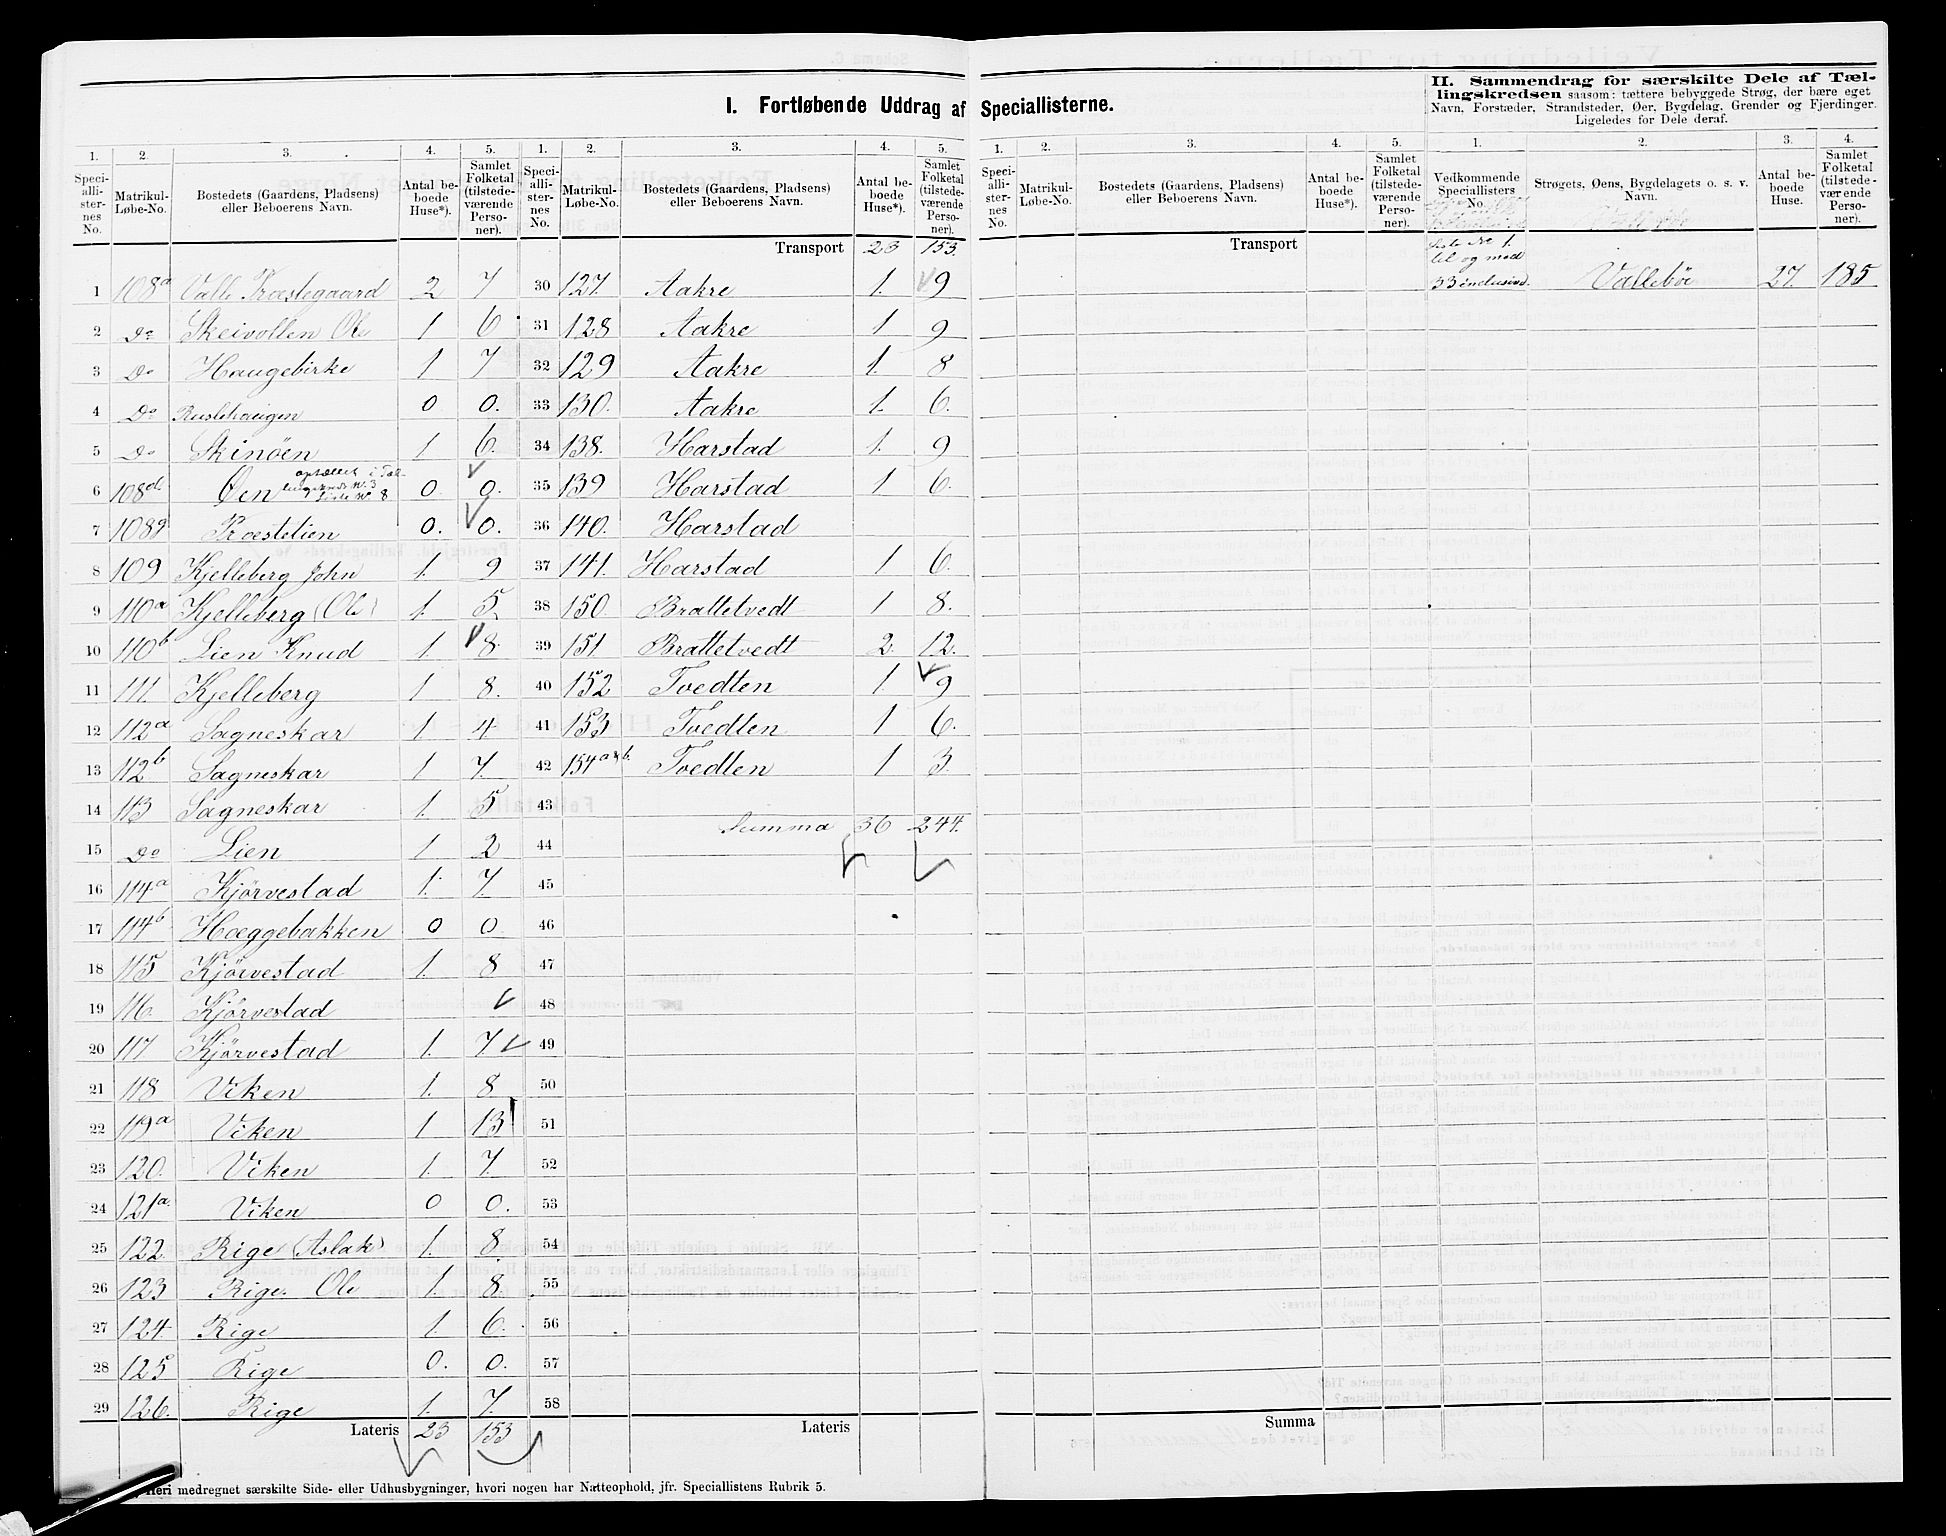 I. Fortløbende Uddrag af Speciallisterne.
II. Sammendrag for særskilte Dele af Tæl-
lingskredsen saasom: tættere bebyggede Strøg, der bære eget
Navn, Forstæder, Strandsteder, Øer, Bygdelag, Grender og Fjerdinger.
Ligeledes for Dele deraf.
1. 2. 3. 4. 5.
Speci-alli-ster-nes No. Matrikul-Løbe-No. Bostedets (Gaardens, Pladsens) eller Beboerens Navn. Antal be-boede Huse*). Samlet Folketal (tilstede-værende Perso-ner).
1 108a Valle Præstegaard 2 7
2 Do Skeivollen Ole 1 6
3 Do Haugebirke 1 7
4 Do Ruslehaugen 0 0.
5 Do Skinöen 1 6.
6 108d Øen optællet i Tæl-lingskreds No. 3 Liste No. 8 0 0.
7 108g Præstelien 0. 0.
8 109 Kjelleberg John 1. 9
9 110a Kjelleberg (Ole) 1. 5.
10 110b Lien Knud 1 8.
11 111. Kjelleberg 1 8.
12 112a Sagneskar 1 4
13 112b Sagneskar 1 7.
14 113 Sagneskar 1. 5
15 Do Lien 1 2
16 114a Kjörvestad 1. 7.
17 114b Hæggebakken 0 0
18 115 Kjörvestad 1. 8
19 116. Kjörvestad
20 117. Kjörvestad 1. 7
21 118 Viken 1. 8
22 119a Viken 1 13
23 120. Viken 1. 7.
24 121a. Viken 0 0.
25 122. Rige (Aslak) 1. 8
26 123 Rige. Ole 1. 8
27 124. Rige 1. 6.
28 125 Rige 0. 0.
29 126. Rige 1. 7.
Lateris 23 153
1. 2. 3. 4. 5.
Speci-alli-ster-nes No. Matrikul-Løbe-No. Bostedets (Gaardens, Pladsens) eller Beboerens Navn. Antal be-boede Huse*). Samlet Folketal (tilstede-værende Perso-ner).
Transport 23 153.
30 127. Aakre 1. 9
31 128 Aakre 1 9
32 129 Aakre 1. 8
33 130. Aakre 1. 6.
34 138. Harstad 1. 9
35 139 Harstad 1 6.
36 140. Harstad
37 141. Harstad 1 6.
38 150. Brattetvedt 1 8.
39 151 Brattetvedt 2. 12.
40 152 Tvedten 1. 9
41 153 Tvedten 1 6.
42 154a&b. Tvedten 1 3.
43
Summa 36 244.
44
45
46
47
48
49
50
51
52
53
54
55
56
57
58
Lateris
1. 2. 3. 4. 5.
Speci-alli-ster-nes No. Matrikul-Løbe-No. Bostedets (Gaardens, Pladsens) eller Beboerens Navn. Antal be-boede Huse*). Samlet Folketal (tilstede-værende Perso-ner).
Transport
Summa
1. 2. 3. 4.
Vedkommende Speciallisters No. Strøgets, Øens, Bygdelagets o. s. v. Navn. Antal be-boede Huse. Samlet Folketal (tilstede-værende Perso-ner).
Liste No 1.
til og med
33 inclusive. Vallebö 27. 185
Heri medregnet særskilte Side- eller Udhusbygninger, hvori nogen har Natteophold, jfr. Speciallistens Rubrik 5.